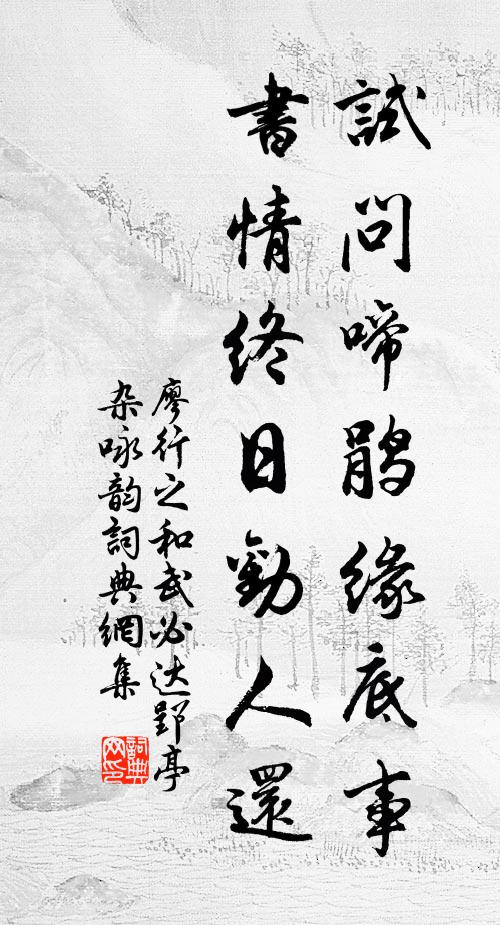 試問啼鵑緣底事
書情終日勸人還
廖行之和武必达郢亭
杂咏韵詞典網集
詞典网印